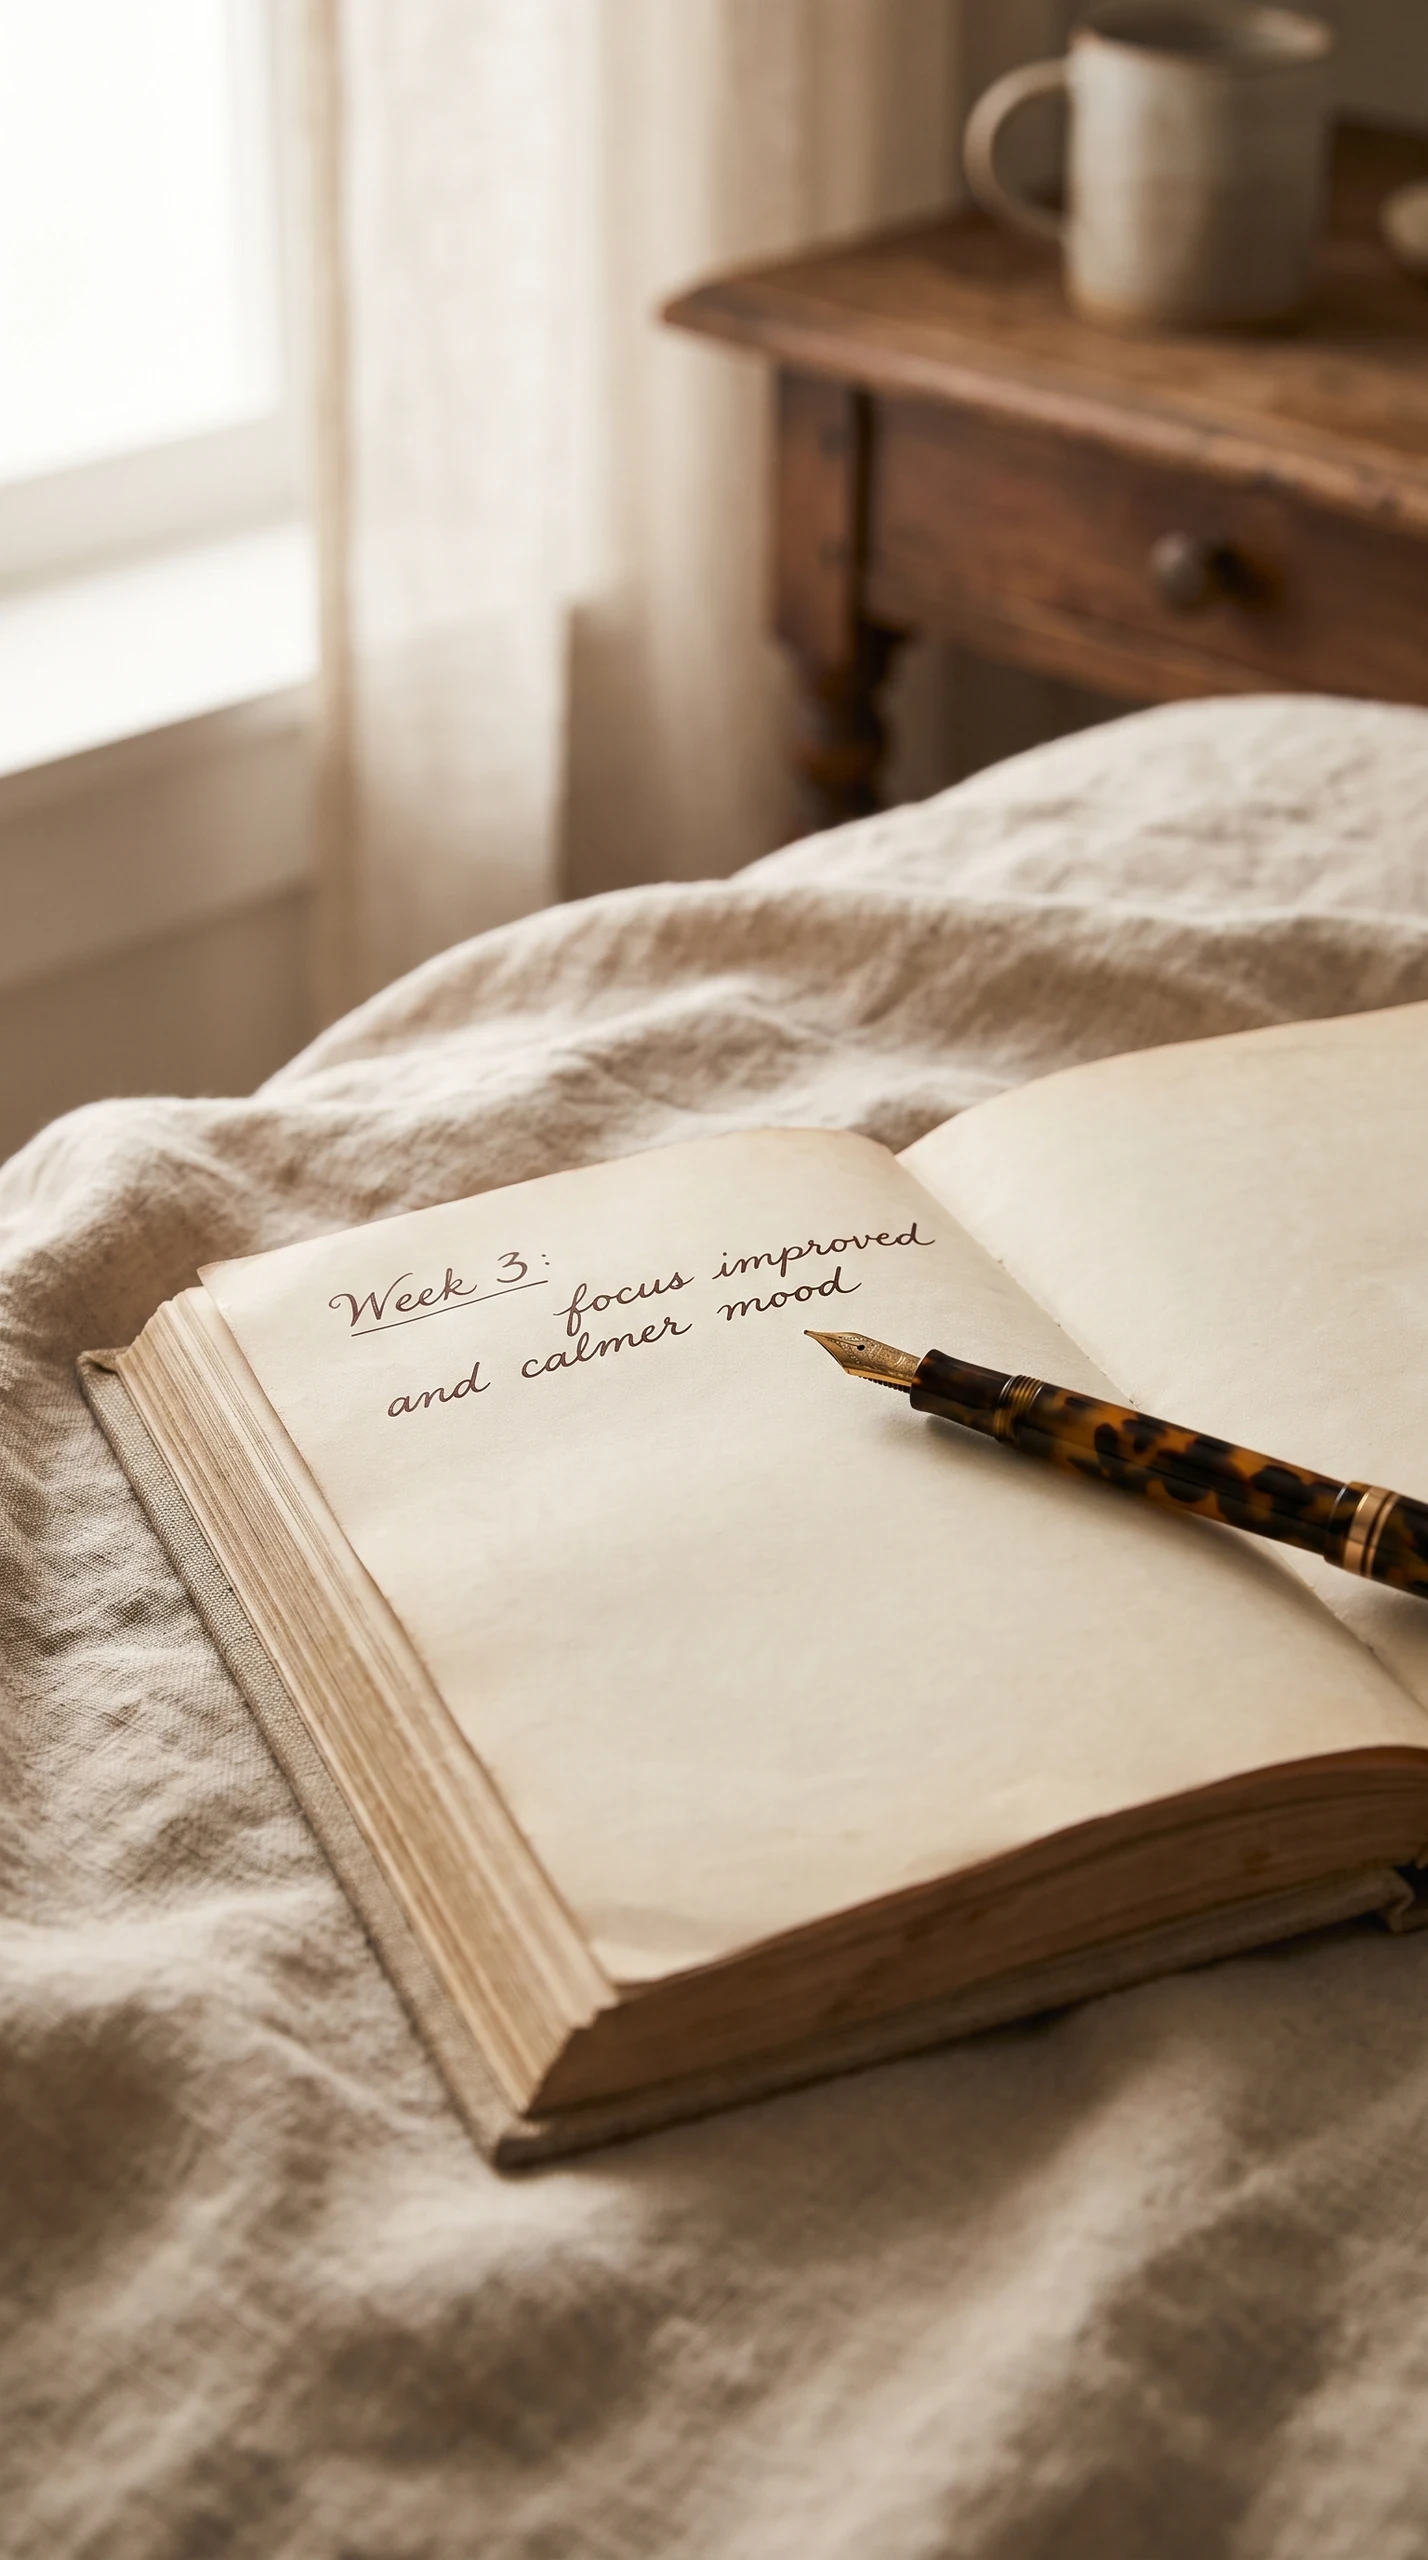 Week 3:
focus improved
and calmer mood